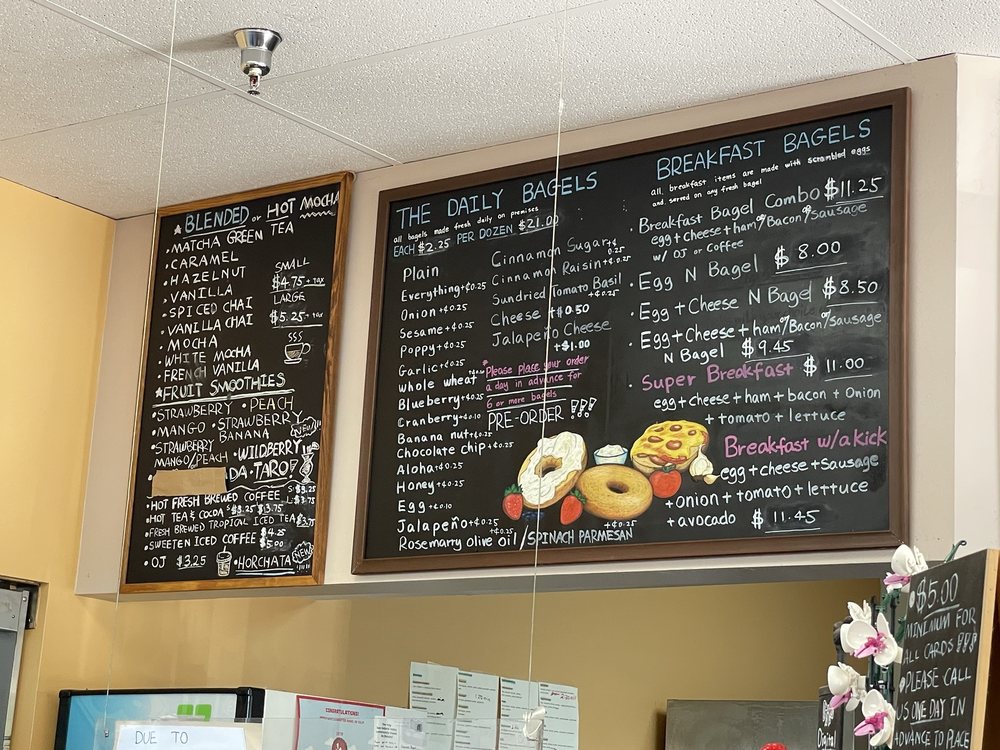 ★BLENDED or HOT MOCHA
• MATCHA GREEN TEA
• CARAMEL
• HAZELNUT
• VANILLA
• SPICED CHAI
• VANILLA CHAI
• MOCHA
• WHITE MOCHA
• FRENCH VANILLA
SMALL
$4.75 + tax
LARGE
$5.25 + tax
★FRUIT SMOOTHIES
• STRAWBERRY • PEACH
• MANGO • STRAWBERRY BANANA
• STRAWBERRY MANGO/PEACH
• WILDBERRY NEW!
DA • TARO
• HOT FRESH BREWED COFFEE S:$3.25 L:$3.75
• HOT TEA & COCOA $3.25 $3.75
• FRESH BREWED TROPICAL ICED TEA $3.75
• SWEETEN ICED COFFEE $4.25 $5.00
• OJ $3.25
• HORCHATA NEW
THE DAILY BAGELS
all bagels made fresh daily on premises
EACH $2.25 PER DOZEN $21.00
Plain
Everything +¢0.25
Onion +¢0.25
Sesame +¢0.25
Poppy +¢0.25
Garlic +¢0.25
whole wheat
Blueberry +¢0.25
Cranberry +¢0.10
Banana nut +¢0.25
Chocolate chip +¢0.25
Aloha +¢0.25
Honey +¢0.25
Egg +¢0.10
Jalapeño +¢0.25
Rosemarry olive oil +¢0.25 / SPINACH PARMESAN +¢0.25
Cinnamon Sugar +¢0.25
Cinnamon Raisin +¢0.25
Sundried Tomato Basil +¢0.25
Cheese +$0.50
Jalapeño Cheese +$1.00
*Please Place your order
a day in advance for
6 or more bagels
PRE-ORDER !!!
BREAKFAST BAGELS
all breakfast items are made with scrambled eggs
and served on any fresh bagel
• Breakfast Bagel Combo $11.25
egg + cheese + ham or Bacon or sausage
w/ OJ or Coffee
• Egg N Bagel $8.00
• Egg + Cheese N Bagel $8.50
• Egg + Cheese + ham/Bacon or sausage
N Bagel $9.45
• Super Breakfast $11.00
egg + cheese + ham + bacon + Onion
+ tomato + lettuce
• Breakfast w/a kick
egg + cheese + sausage
+ onion + tomato + lettuce
+ avocado $11.45
• $5.00
MINIMUM FOR
ALL CARDS !!!
• PLEASE CALL
US ONE DAY IN
ADVANCE TO PLACE
DUE TO
CONGRATULATIONS!
Digital